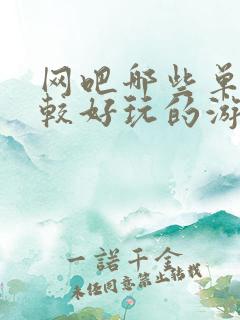 网吧哪些单
较好玩的游
一諾千金
未经同意禁止转载